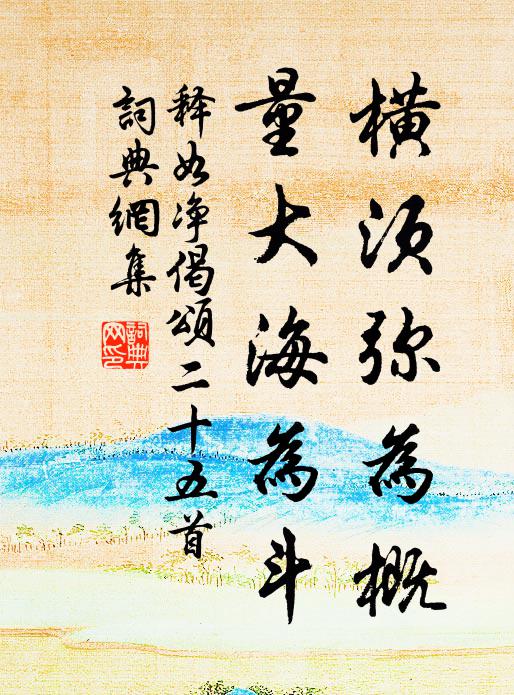 橫須弥為概
量大海為斗
释如净偈頌二十五首
詞典網集
詞典網印